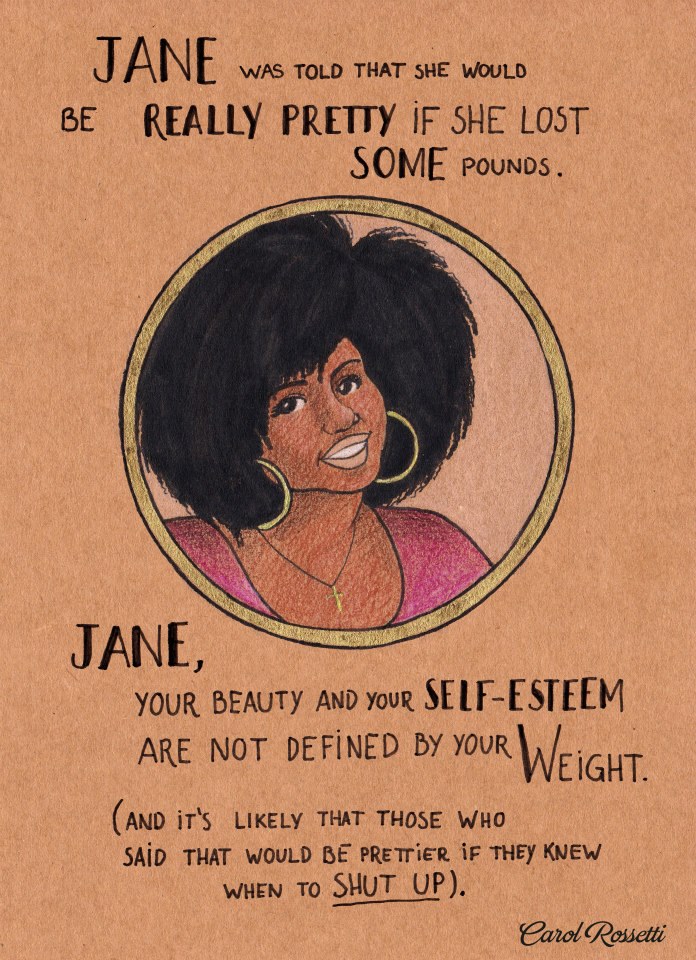 JANE WAS TOLD THAT SHE WOULD
BE REALLY PRETTY IF SHE LOST
SOME POUNDS.
JANE,
YOUR BEAUTY AND YOUR SELF-ESTEEM
ARE NOT DEFINED BY YOUR WEIGHT.
(AND IT'S LIKELY THAT THOSE WHO
SAID THAT WOULD BE PRETTIER IF THEY KNEW
WHEN TO SHUT UP).
Carol Rossetti